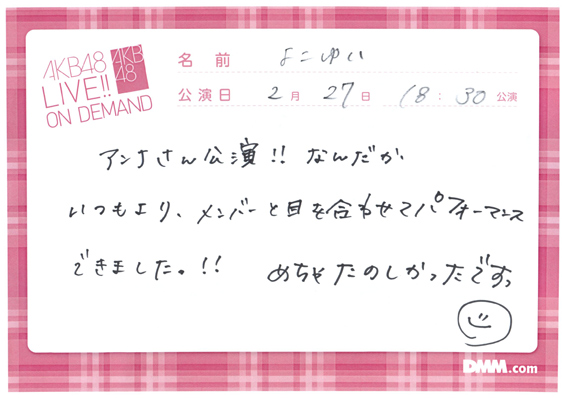 AKB48
LIVE!!
ON DEMAND
AKB
48
名前 よこゆい
公演日 2月27日 18:30公演
アンナさん公演!! なんだか
いつもより、メンバーと目を合わせてパフォーマンス
できました。!! めちゃたのしかったですっ
DMM.com